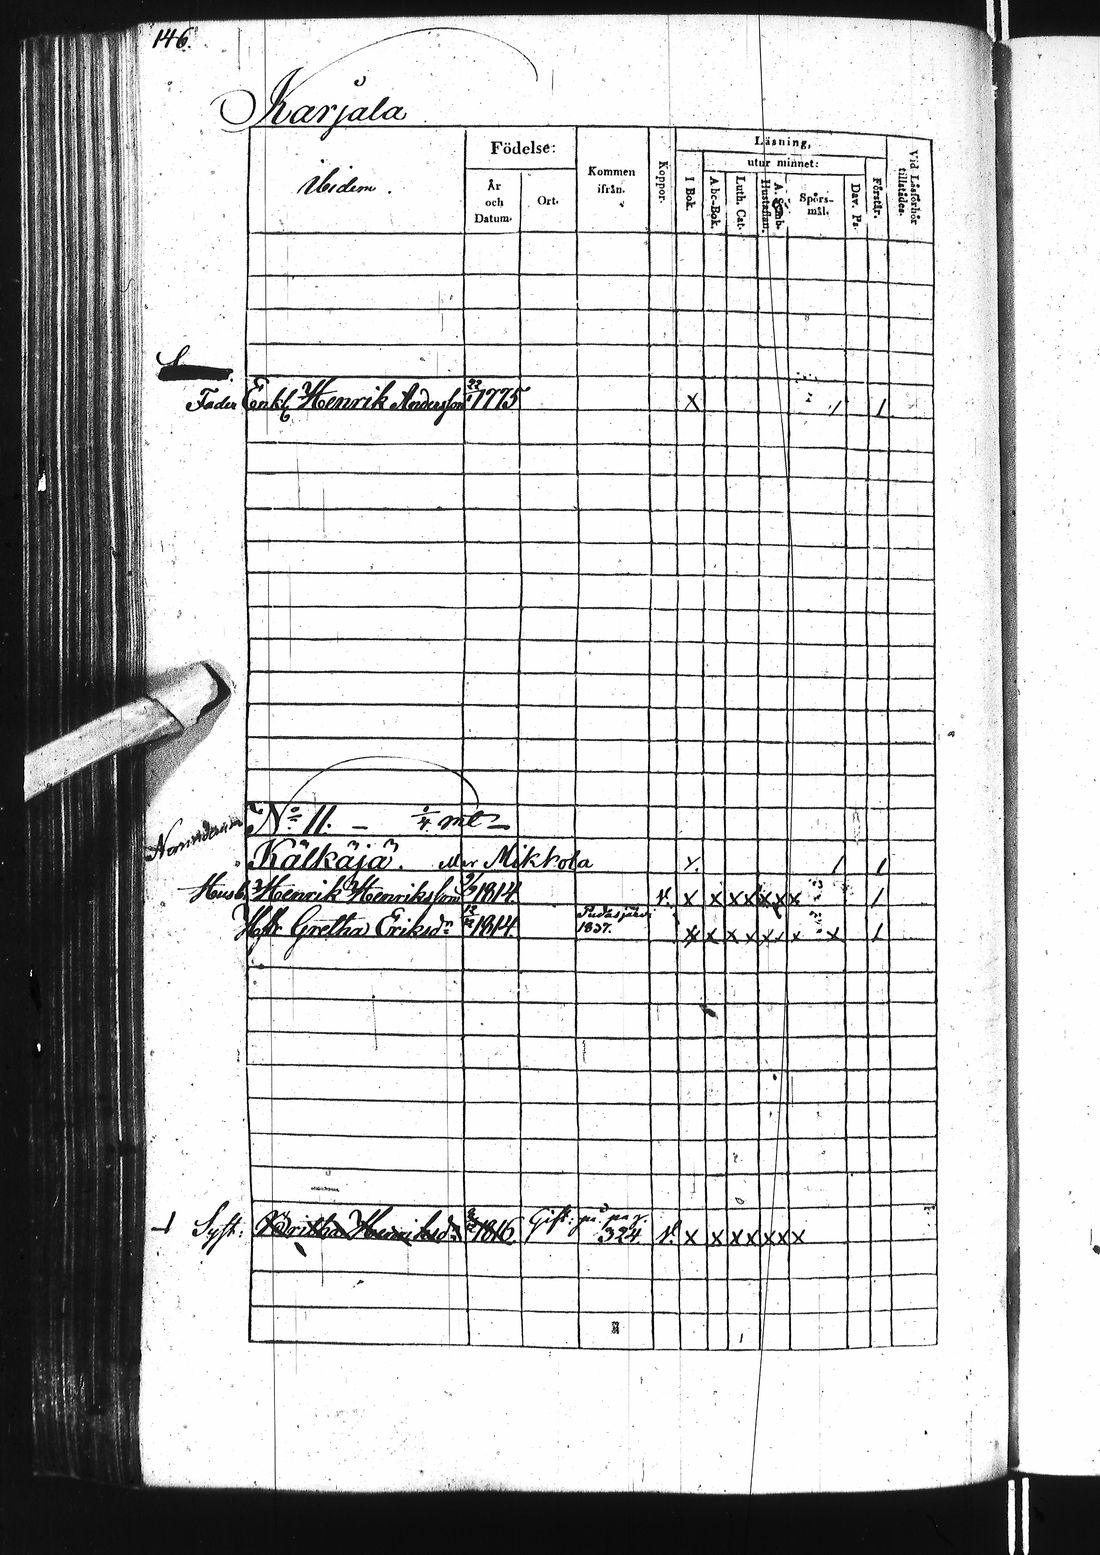 146.
Karjala
ibidem.
Födelse:
År och Datum.
Ort.
Kommen ifrån.
Koppor.
Läsning,
utur minnet:
I Bok.
Abc-Bok.
Luth. Cat.
A. Symb. Hustaflan.
Spörs- mål.
Dav. Ps.
Förstår.
Vid Läsförhör tillstädes.
Fader Enkl. Henrik Andersson 1775 X / 1
No 11. —
Kälkäjä. eller Mikkola x. / 1
Husb. Henrik Henriksson 1814. v. x x x x x x x 1
Hstr Gretha Eriksdr 1814. Pudasjärvi 1837. x x x x x x x x 1
Syst: Britha Henriksdr 1816 Gift: på pag. 324. v. x x x x x x x